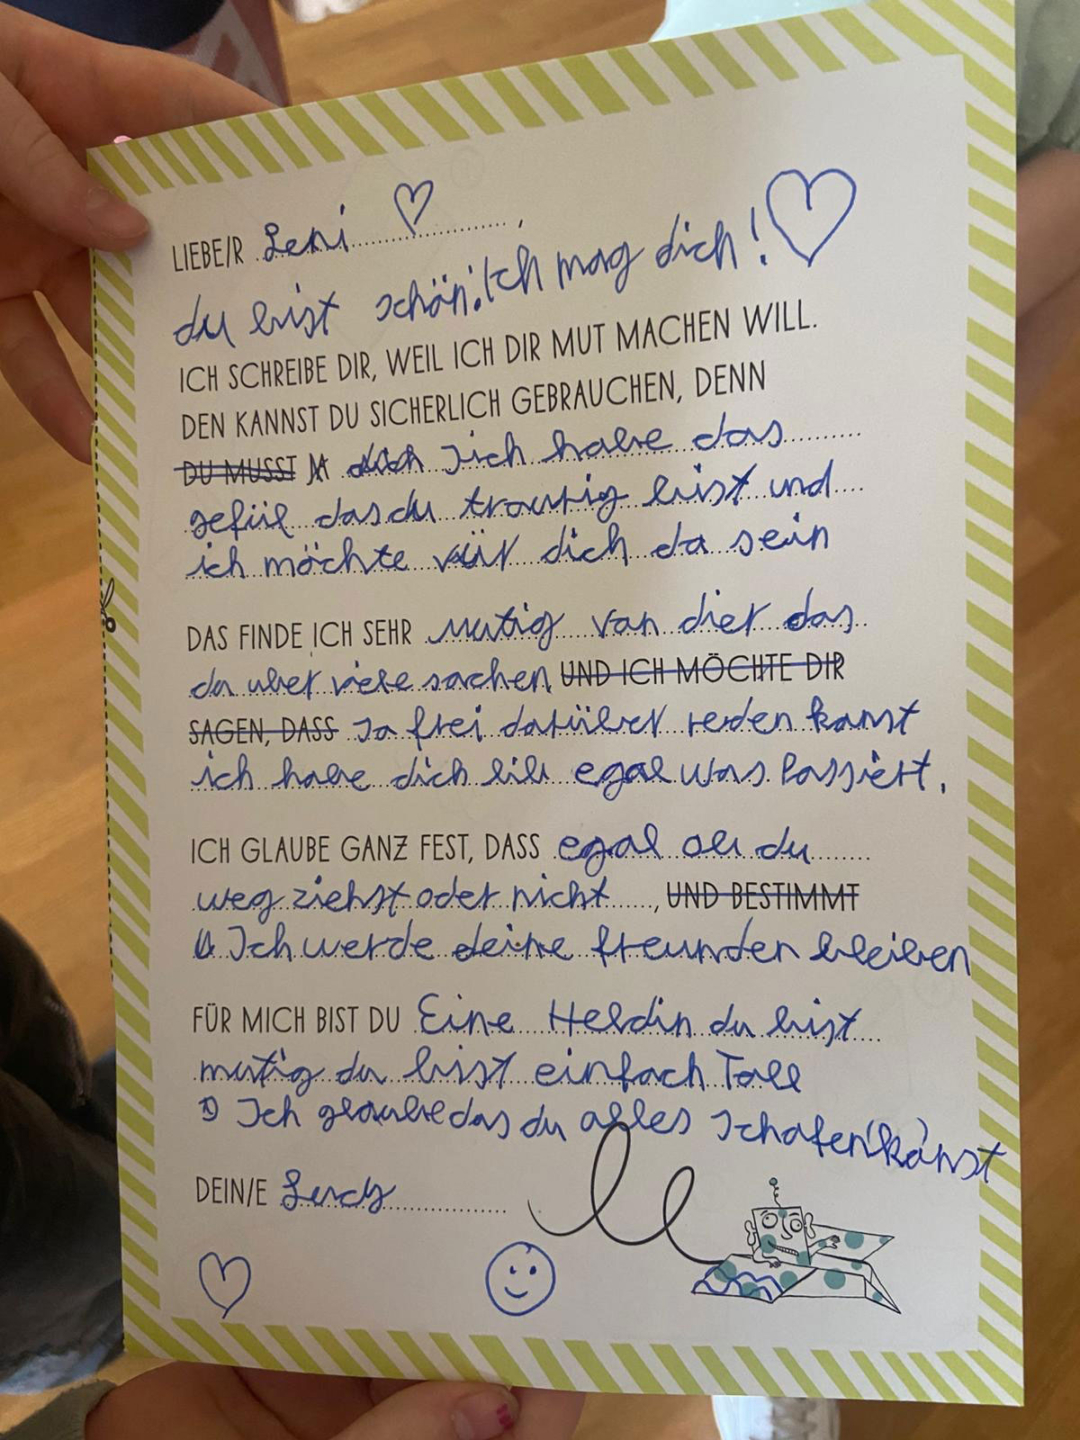 LIEBE/R Leni
du bist schön. Ich mag dich!
ICH SCHREIBE DIR, WEIL ICH DIR MUT MACHEN WILL.
DEN KANNST DU SICHERLICH GEBRAUCHEN, DENN
DU MUSST Jich habe das
gefül das du traurig bist und
ich möchte vür dich da sein
DAS FINDE ICH SEHR mutig van dier das
du uber viele sachen UND ICH MÖCHTE DIR
SAGEN, DASS Ja frei darüber reden kanst
ich habe dich lib egal was Passiert.
ICH GLAUBE GANZ FEST, DASS egal ob du
weg ziehst oder nicht, UND BESTIMMT
Ich werde deine freunden bleiben
FÜR MICH BIST DU Eine Heldin du bist
mutig du bist einfach Toll
Ich glaube das du alles schafen kanst
DEIN/E